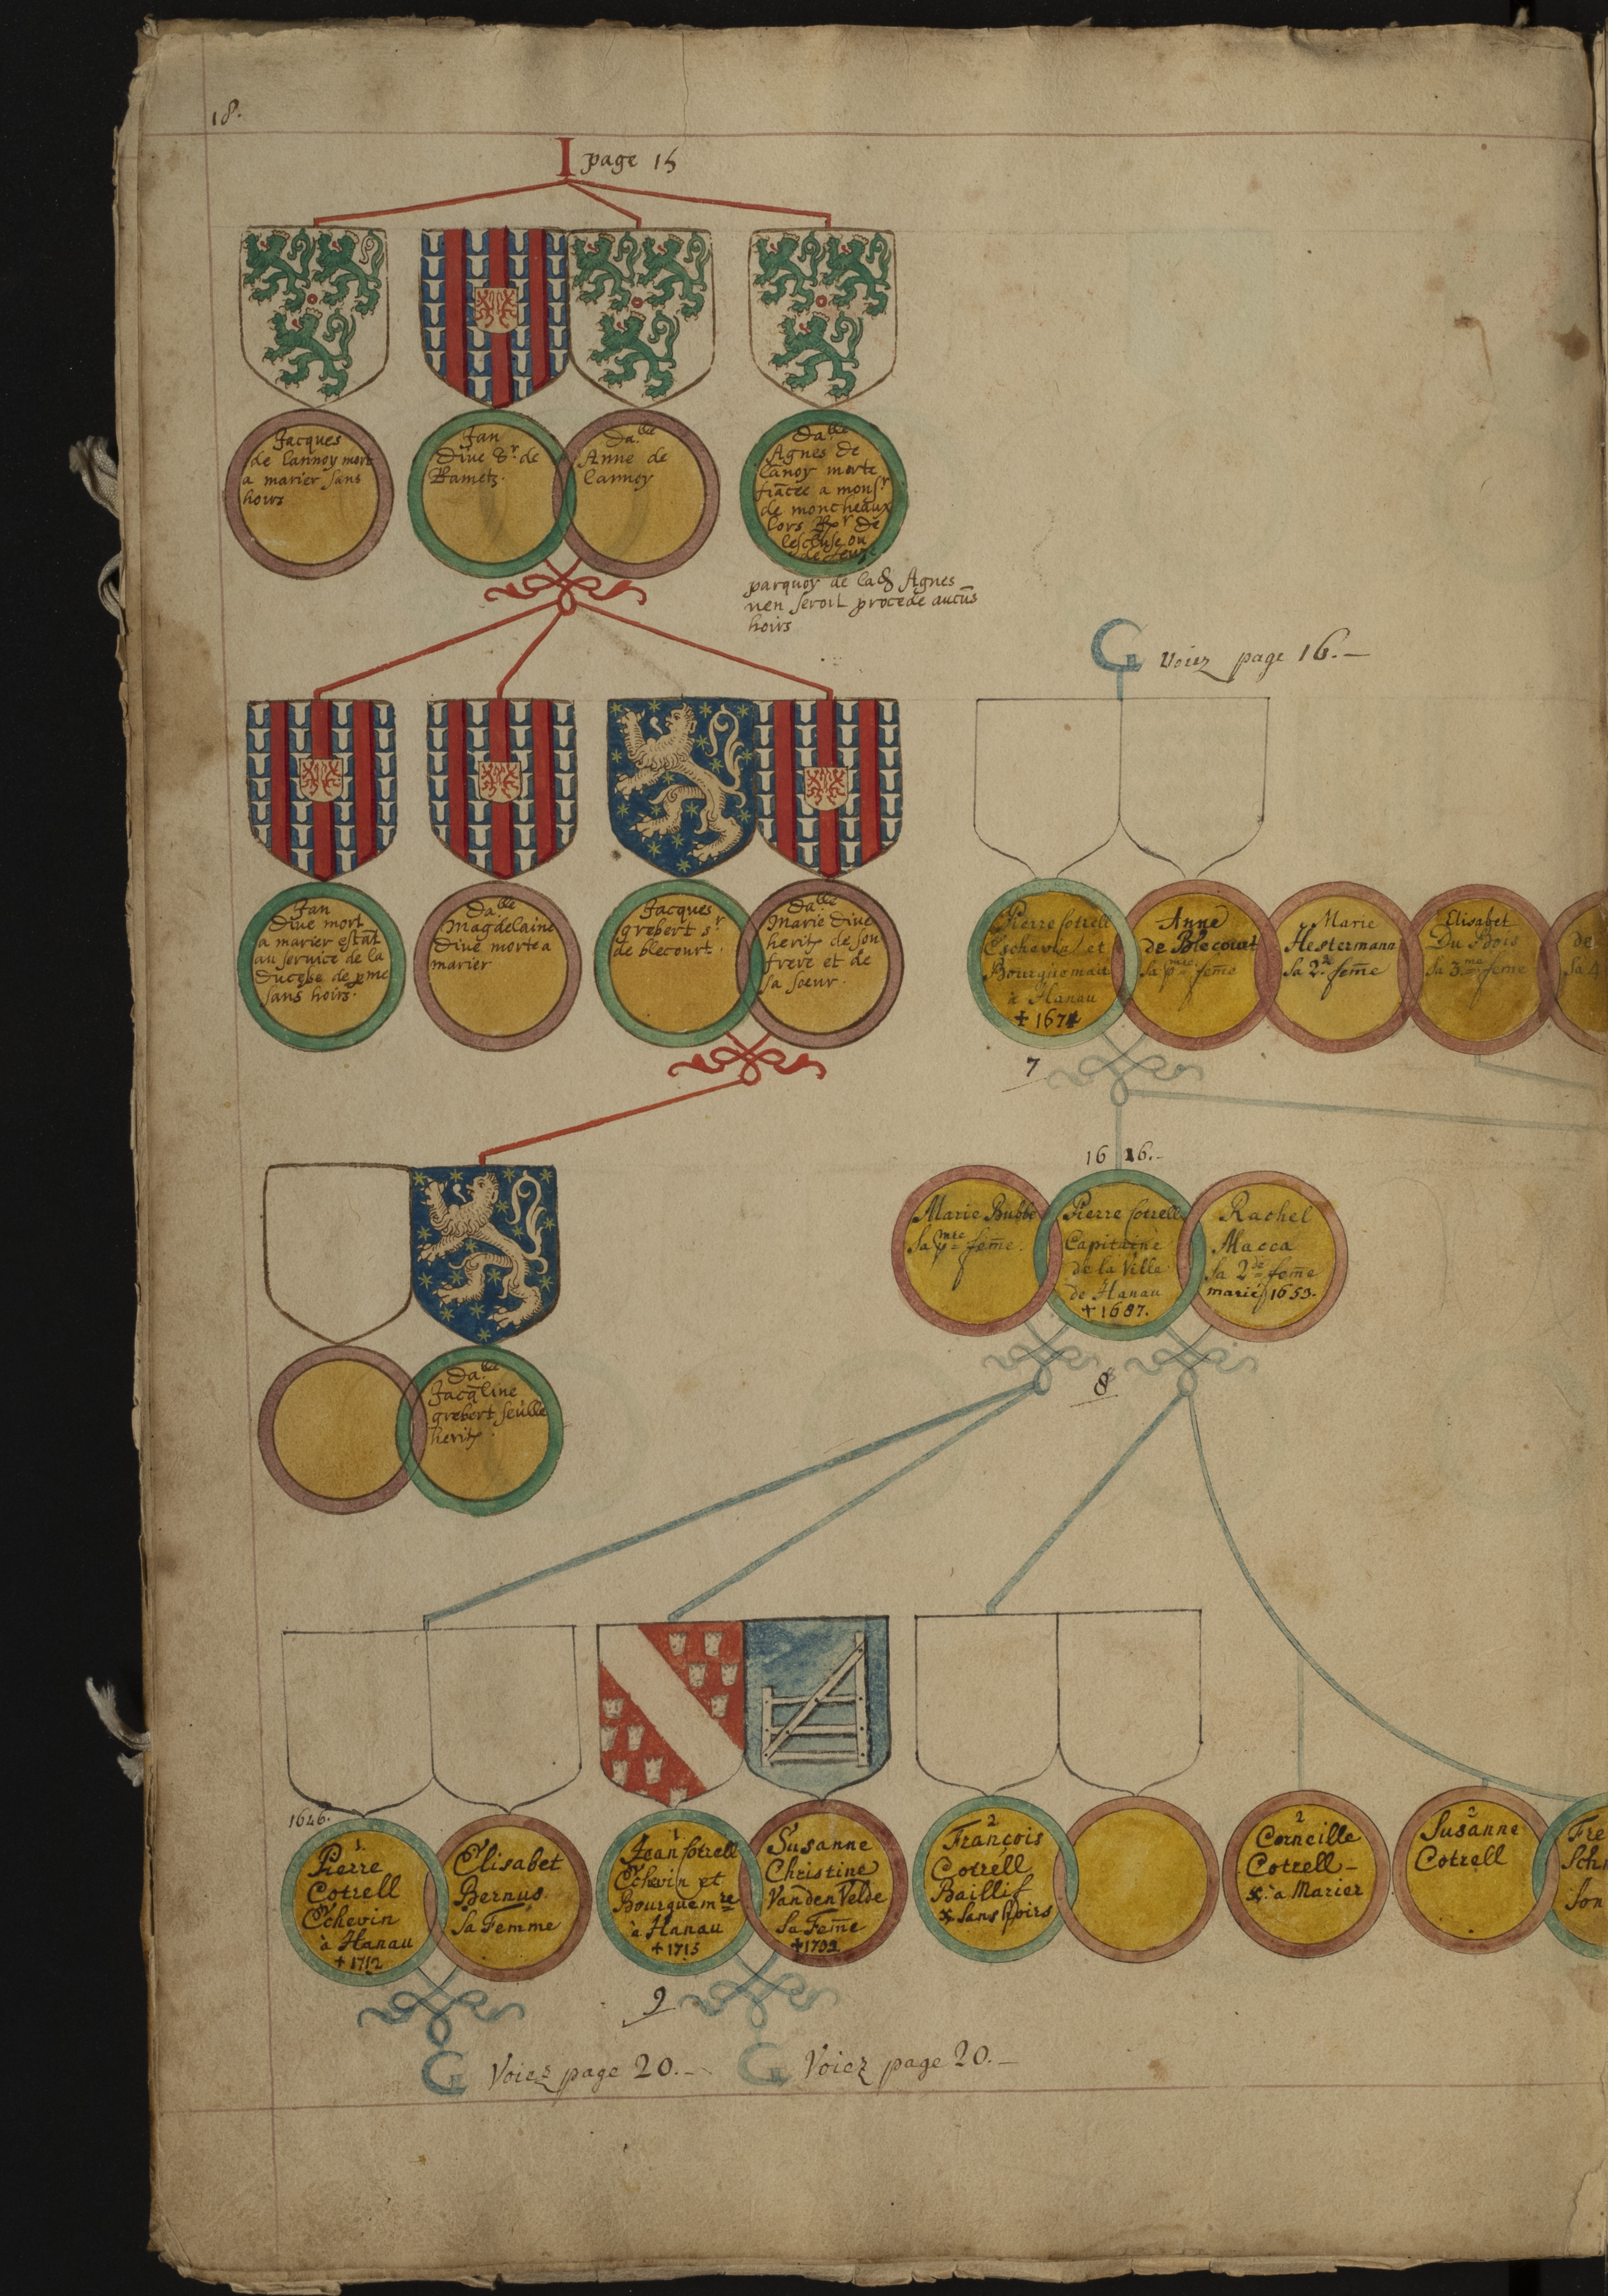 18.
I page 15
Jacques
de lannoy mort
a marier sans
hoirs
Jan
Dive Sr. de
Rametz.
Dalle
Anne de
lannoy
Dalle
Agnes de
lānoy morte
fiācée a monsr
de moncheaux
lors
de
lescluse ou
de
parquoy de lad Agnes
nen seroit procede aucūs
hoirs
G Voiez page 16.—
Jan
Dive mort
a marier estāt
au service de la
Ducesse de pme
sans hoirs.
Dalle
Magdelaine
Dive morte a
marier
Jacques
grebert sr
de blecourt.
Dalle
Marie Dive
herit. de son
frere et de
sa soeur.
Pierre Cotrell
Eschevin et
Bourguemait
à Hanau
+ 1674
Anne
de Blecourt
sa pmre feme
Marie
Hestermann
sa 2de feme
Elisabet
Du Bois
sa 3me feme
de
sa 4
7
16 16.-
Marie Bubbe
sa pmre feme.
Pierre Cotrell
Capitaine
de la Ville
de Hanau
+ 1687.
Rachel
Macca
sa 2de feme
marié 1653.
8
Dalle
Jacqline
grebert seulle
herit.
1646.
1
Pierre
Cotrell
Echevin
à Hanau
+ 1712
Elisabet
Bernus
Sa Femme
1
Jean Cotrell
Echevin et
Bourguemre
à Hanau
+ 1715
Susanne
Christine
Van den Velde
Sa Feme
+1702
2
François
Cotrell
Baillif
x sans hoirs
2
Corneille
Cotrell -
x. à Marier
2
Susanne
Cotrell
Fre
Sch
son
9
G Voiez page 20.-
G Voiez page 20.—